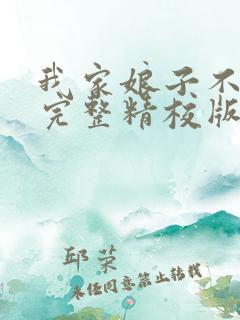 我家娘子不
完整精校版
邱荣
未经同意禁止转载